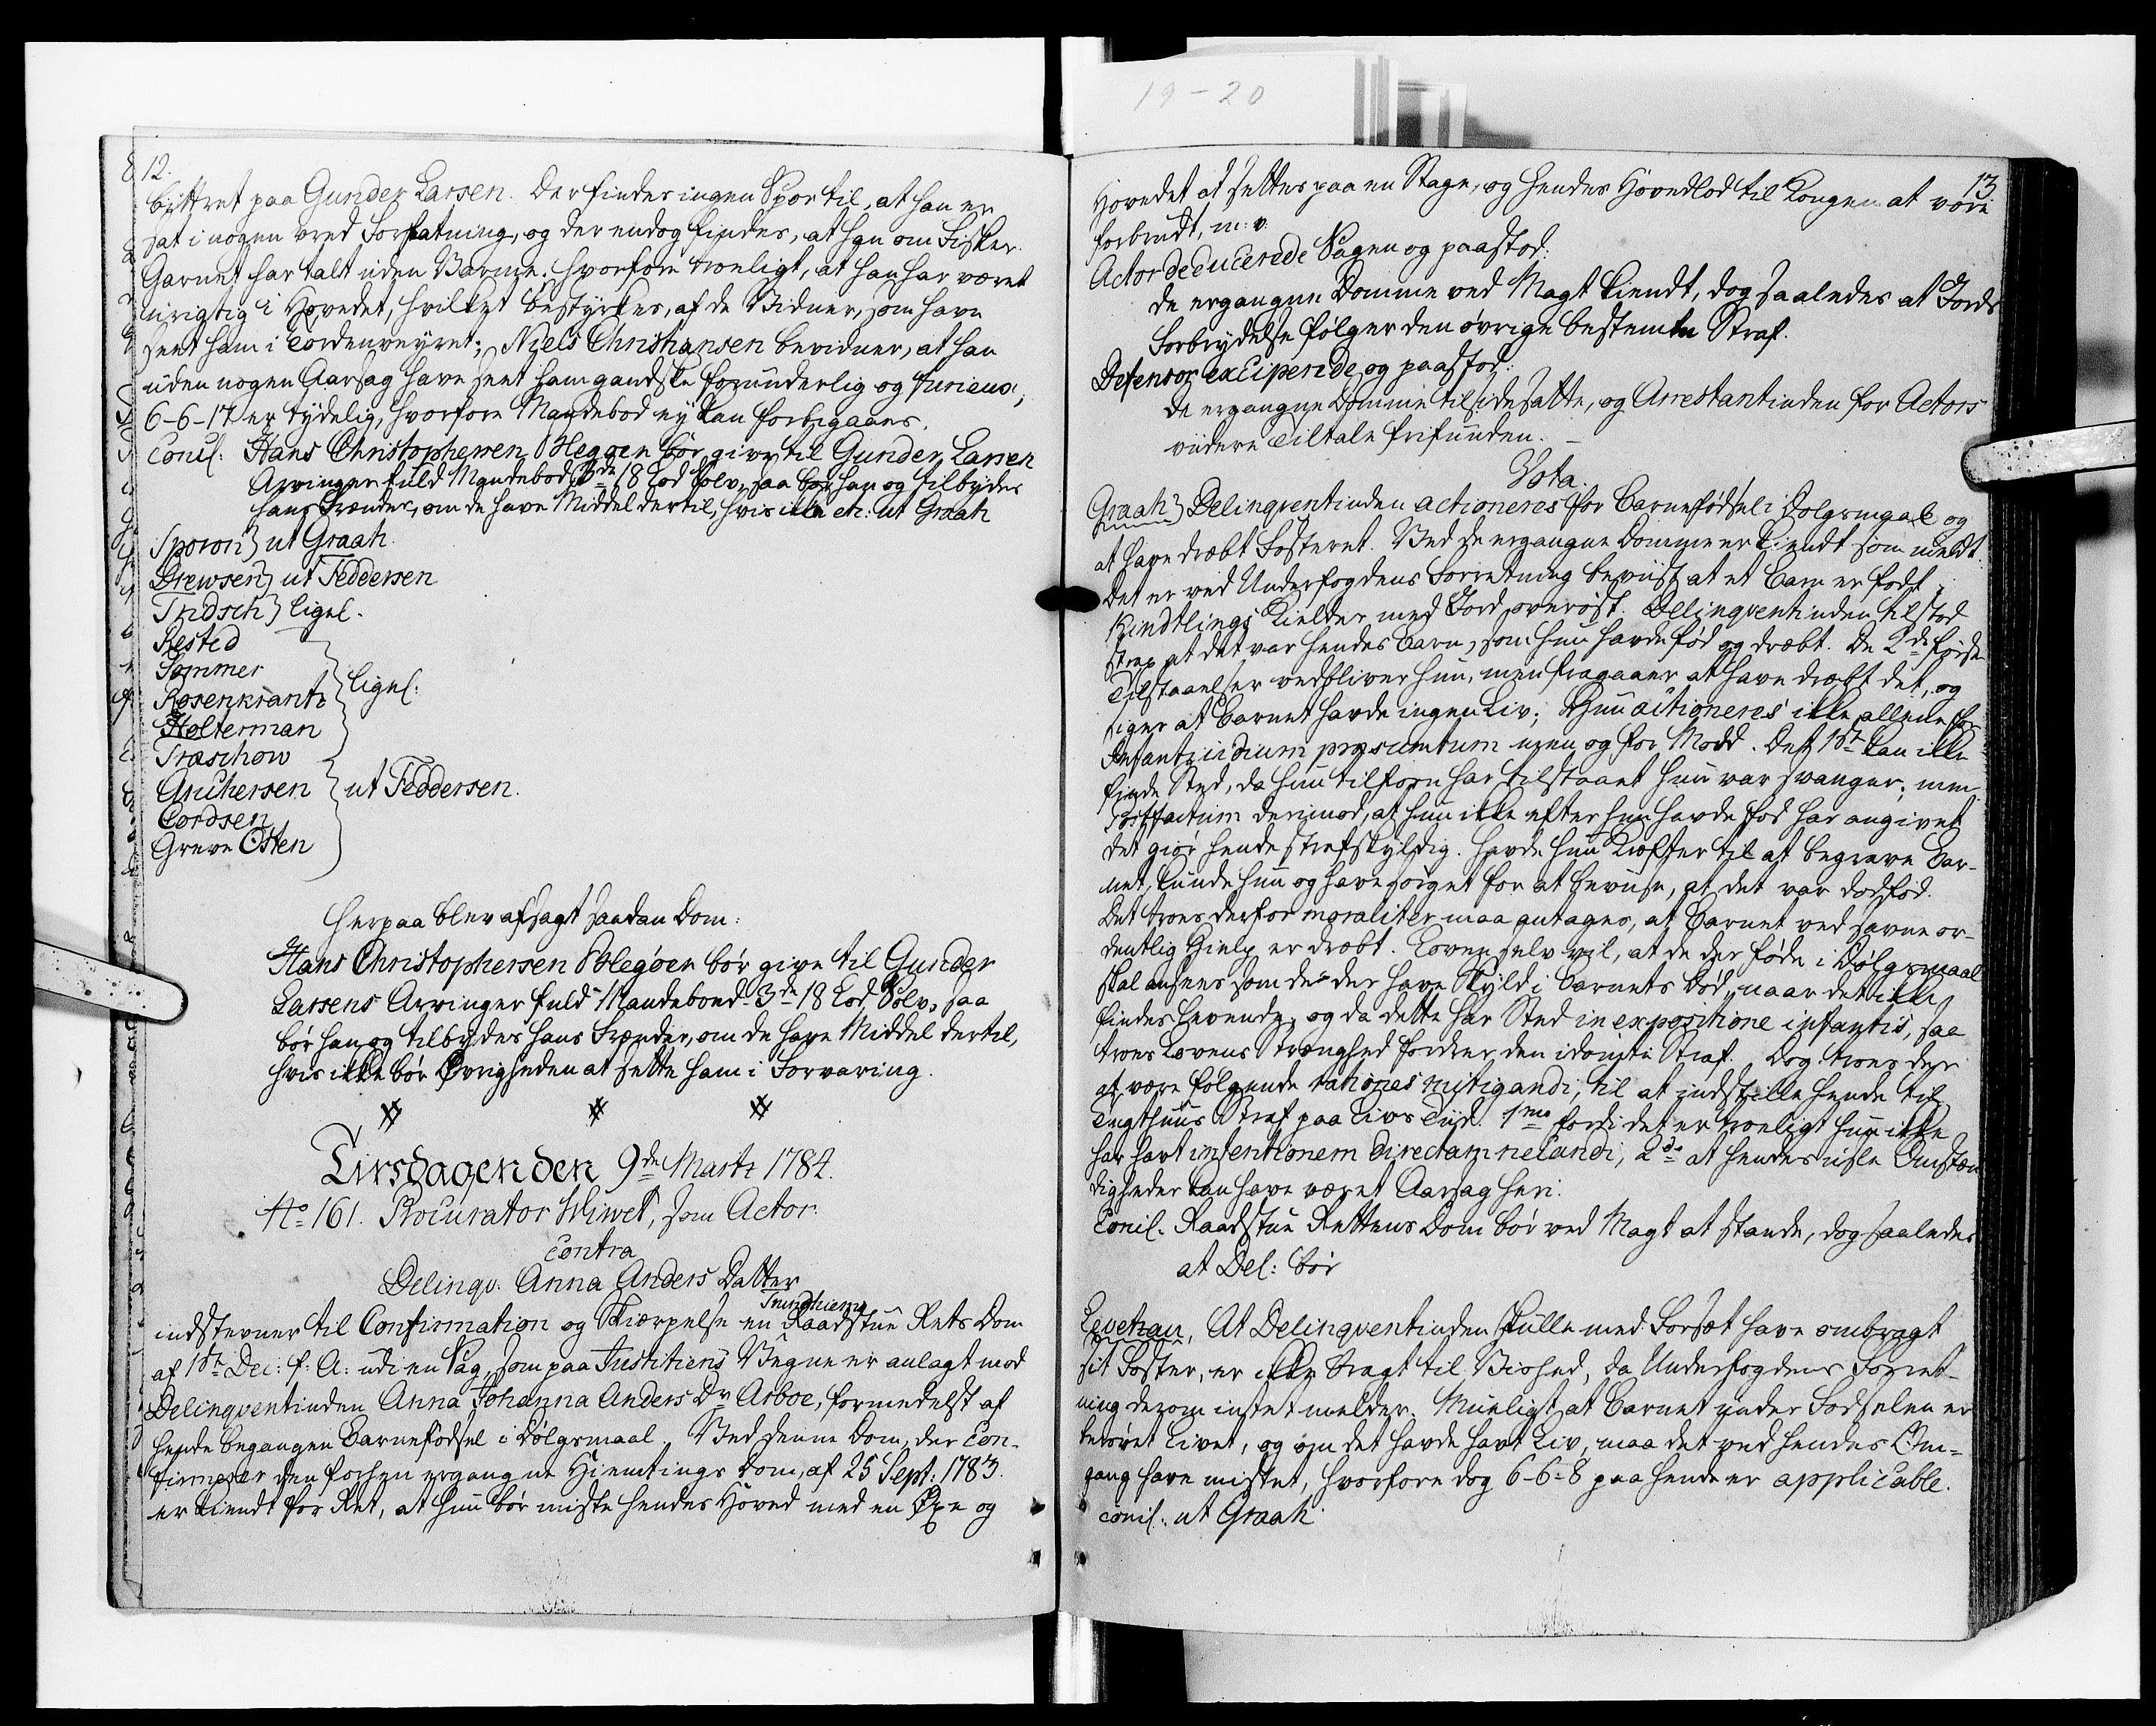 12.
bittret paa Gunder Larsen. Der findes ingen Spor til, at han er
sat i nogen vred Forfatning, og der endog findes, at han om Fisker
Garnet har talt uden Varme. hvorfore troeligt, at han har været
urigtig i Hovedet, hvilket bestyrkes, af de Vidner, som have
seet ham i Tordenveyret; Niels Christiansen bevidner, at han
uden nogen Aarsag have seet ham gandske forunderlig og furieus;
6-6-17 er tydelig, hvorfore Mandebod ey kan forbigaaes.
Concl: Hans Christophersen Hegøen bør give til Gunder Larsen
Arvinger fuld Mandebod 3de 18 Lod Sølv, saa bør han og tilbydes
hans Frænder, om de have Middel dertil, hvis ikke etc: ut Graah
Sporon} ut Graah.
Drewsen} ut Feddersen
Tridsch} ligel.
Kested
Sommer
Rosenkrantz
Holterman
ligel:
Træschow
Anchersen
Cordsen
Greve Osten
ut Feddersen.
Herpaa blev afsagt saadan Dom:
Hans Christophersen Hegøen bør give til Gunder
Larsens Arvinger fuld Mandebond 3de 18 Lod Sølv, saa
bør han og tilbydes hans Frænder, om de have Middel dertil,
hvis ikke bør Øvrigheden at sette ham i Forvaring.
Tirsdagen den 9de Martz 1784.
No 161. Procurator Wiwet, som Actor
contra
Delinqv. Anna Anders Datter
indstevner til Confirmation og Skiærpelse en Trundhiems Raadstue Rets Dom
af 1ste Dec: f. A: udi en Sag, som paa Justitiens Vegne er anlagt mod
Delinqventinden Anna Johanna Anders Dr Arboe, formedelst af
hende begangen Barnefødsel i Dølgsmaal. Ved denne Dom, der con-
firmerer den forhen ergangne Hiemtings Dom, af 25 Sept: 1783.
er kiendt for Ret, at hun bør miste hendes Hoved med en Øxe og
19-20
13
Hovedet at settes paa en Stage, og hendes Hovedlod til Kongen at være
forbrudt, m: v.
Actor deducerede Sagen og paastod:
de ergangne Domme ved Magt kiendt, dog saaledes at Jords
Forbrydelse følger den øvrige bestemte Straf.
Defensor exciperede og paastod:
de ergangne Domme tilsidesatte, og Arrestantinden for Actors
videre Tiltale frifunden.
Vota.
Graah} Delinqventinden actioneres for Barnefødsel i Dølgsmaal og
at have dræbt Fosteret. Ved de ergangne Domme er kiendt som meldt.
Det er ved Underfogdens Forretning beviist at et Barn er født i
Kindtlings Kielder med Jord overøst. Delinqventinden tilstod
strax at det var hendes Barn, som hun havde fød og dræbt. De 2de første
Tilstaaelser vedbliver hun, men fragaaer at have dræbt det, og
siger at Barnet havde ingen Liv; Hun actioneres ikke allene for
Infanticidium præsumtum men og for Modd. Det 1ste kan ikke
finde Sted, da hun tilforn har tilstaaet hun var svanger; men
Postfactum derimod, at hun ikke efter hun havde fød har angivet
det giør hende strafskyldig. Havde hun Kræfter til at begrave Bar-
net, kunde hun og have sørget for at bevise, at det var dødfød.
Det troes derfor moraliter maa antages, at Barnet ved savne or-
dentlig Hielp er dræbt. Loven selv vil, at de der føde i Dølgsmaal
skal ansees som de der have Skyld i Barnets Død, naar det ikke
findes levende, og da dette har Sted in expositione infantis, saa
troes Lovens Strenghed fordrer den idømte Straf. Dog troes der
at være følgende rationes mitigandi, til at indstille hende til
Tugthuus Straf paa Livs Tiid. 1mo fordi det er troeligt hun ikke
har havt intentionem directam necandi, 2do at hendes usle Omstæn
digheder kan have været Aarsag heri.
Concl. Raadstue Rettens Dom bør ved Magt at stande, dog saaledes
at Del: bør
Levetzau, At Delinqventinden skulle med Forsæt have ombragt
sit Foster, er ikke bragt til Vished, da Underfogdens Forret-
ning derom intet melder. Mueligt at Barnet under Fødselen er
berøvet Livet, og om det havde havt Liv, maa det ved hendes Om-
gang have mistet, hvorfore dog 6-6-8 paa hende er applicable.
concl: ut Graah